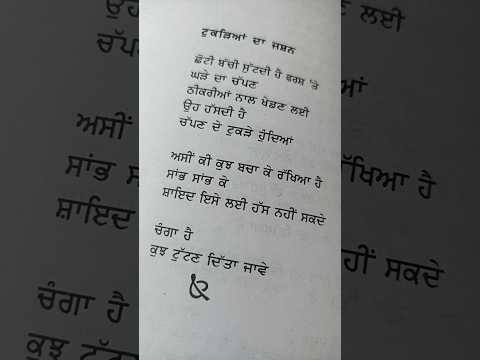 ਟੁਕੜਿਆਂ ਦਾ ਜਸ਼ਨ
ਛੋਟੀ ਬੱਚੀ ਸੁੱਟਦੀ ਹੈ ਫਰਸ਼ 'ਤੇ
ਘੜੇ ਦਾ ਚੱਪਣ
ਠੀਕਰੀਆਂ ਨਾਲ ਖੇਡਣ ਲਈ
ਉਹ ਹੱਸਦੀ ਹੈ
ਚੱਪਣ ਦੇ ਟੁਕੜੇ ਹੁੰਦਿਆਂ
ਅਸੀਂ ਕੀ ਕੁਝ ਬਚਾ ਕੇ ਰੱਖਿਆ ਹੈ
ਸਾਂਭ ਸਾਂਭ ਕੇ
ਸ਼ਾਇਦ ਇਸੇ ਲਈ ਹੱਸ ਨਹੀਂ ਸਕਦੇ
ਚੰਗਾ ਹੈ
ਕੁਝ ਟੁੱਟਣ ਦਿੱਤਾ ਜਾਵੇ